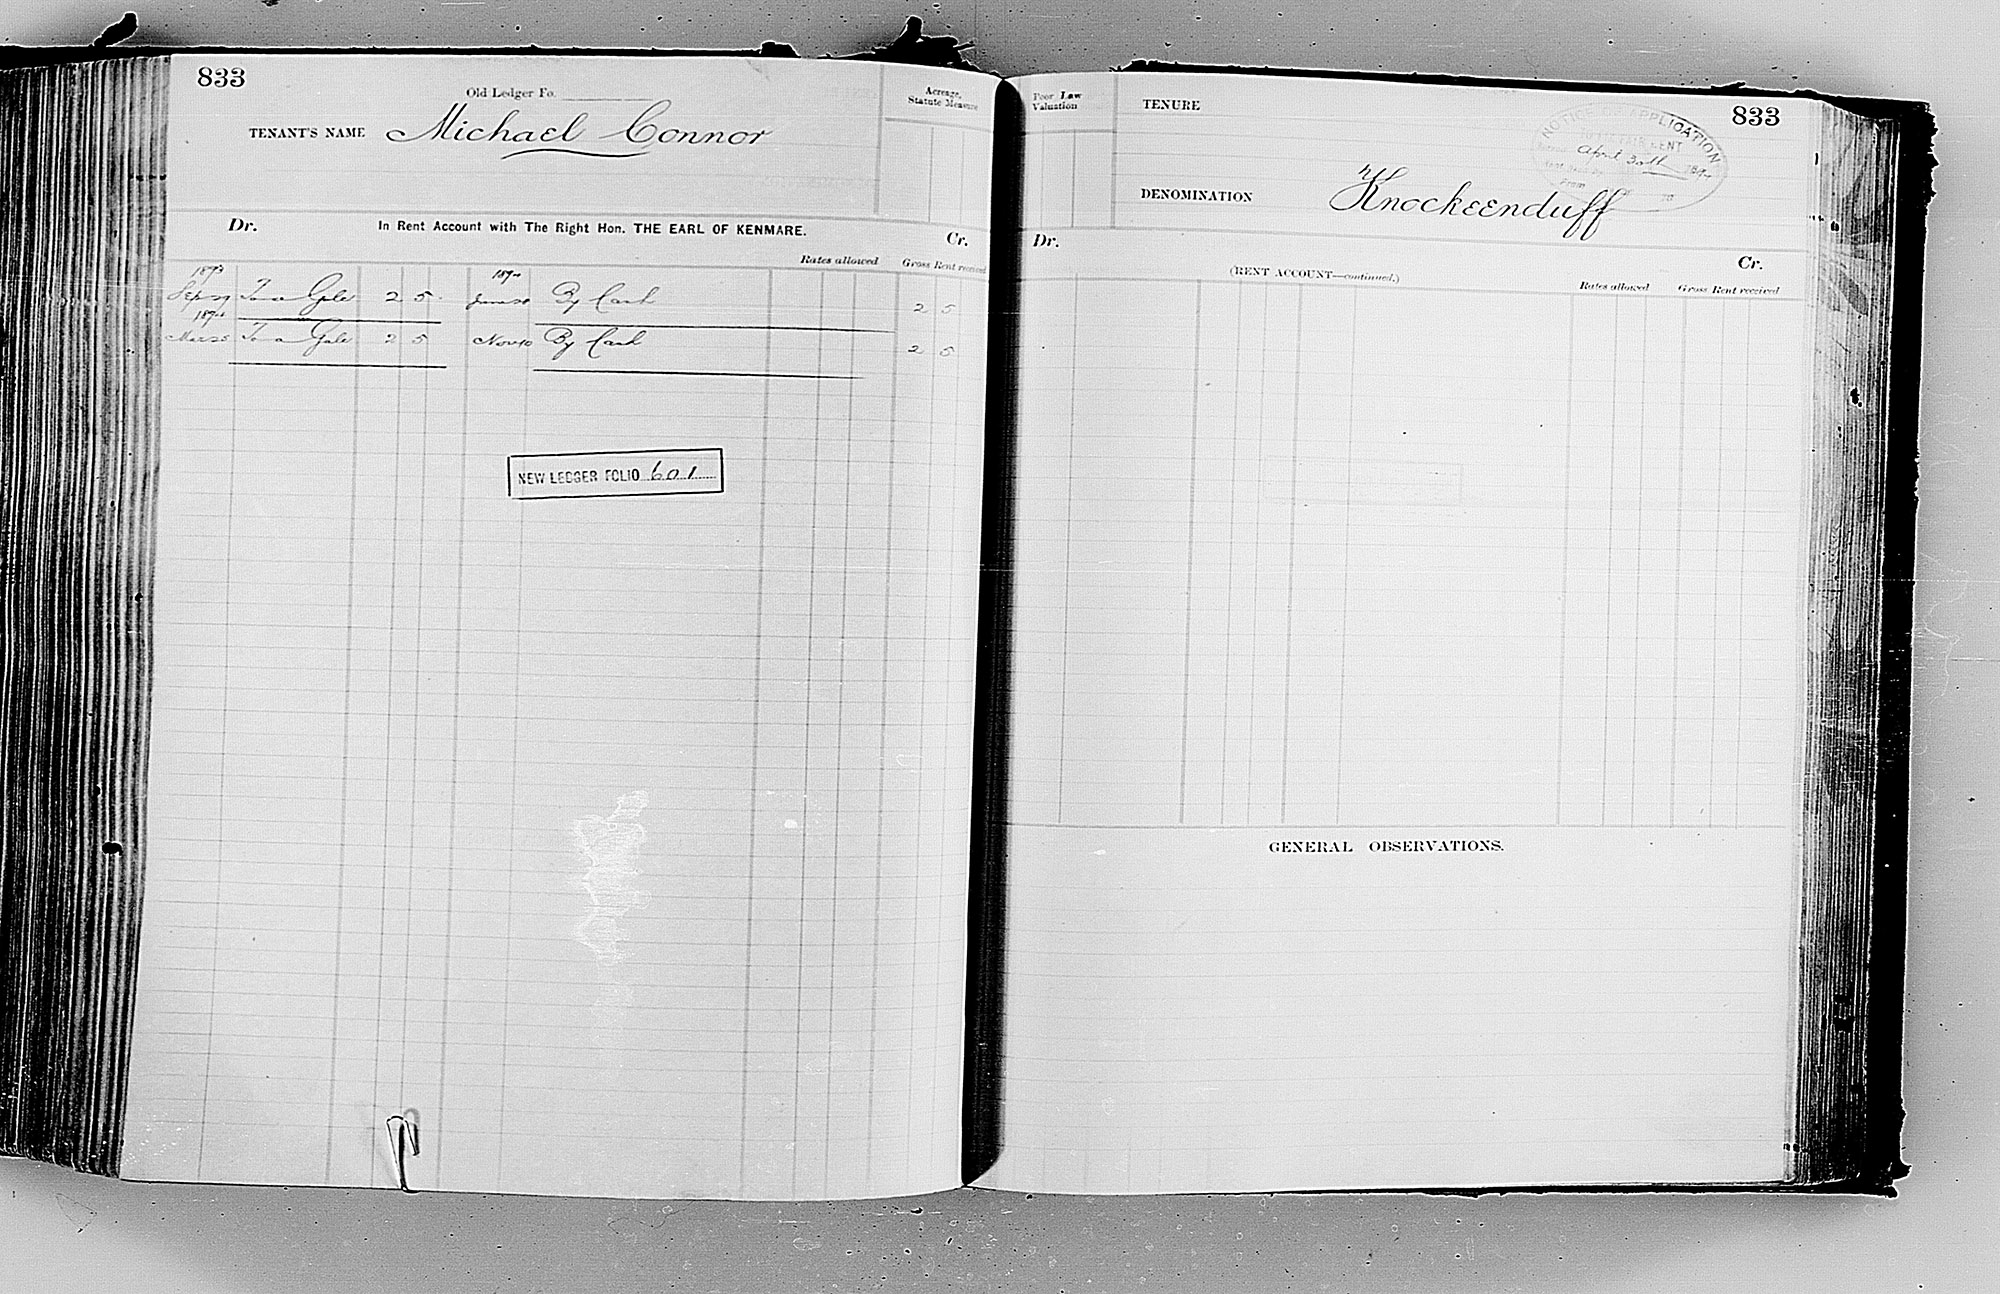 833
Old Ledger Fo.
Acreage,
Statute Measure
TENANT'S NAME Michael Connor
Dr. In Rent Account with The Right Hon. THE EARL OF KENMARE. Cr.
Rates allowed Gross Rent received
1893 189
Sep 29 To a Gale 2 5 June By Cash 2 5
189
Mar 25 To a Gale 2 5 Nov 10 By Cash 2 5
NEW LEDGER FOLIO 601
Poor Law
Valuation
TENURE
833
NOTICE OF APPLICATION
RENT
April 30th 189
From
DENOMINATION Knockeenduff
Dr. Cr.
(RENT ACCOUNT—continued.)
Rates allowed Gross Rent received
GENERAL OBSERVATIONS.